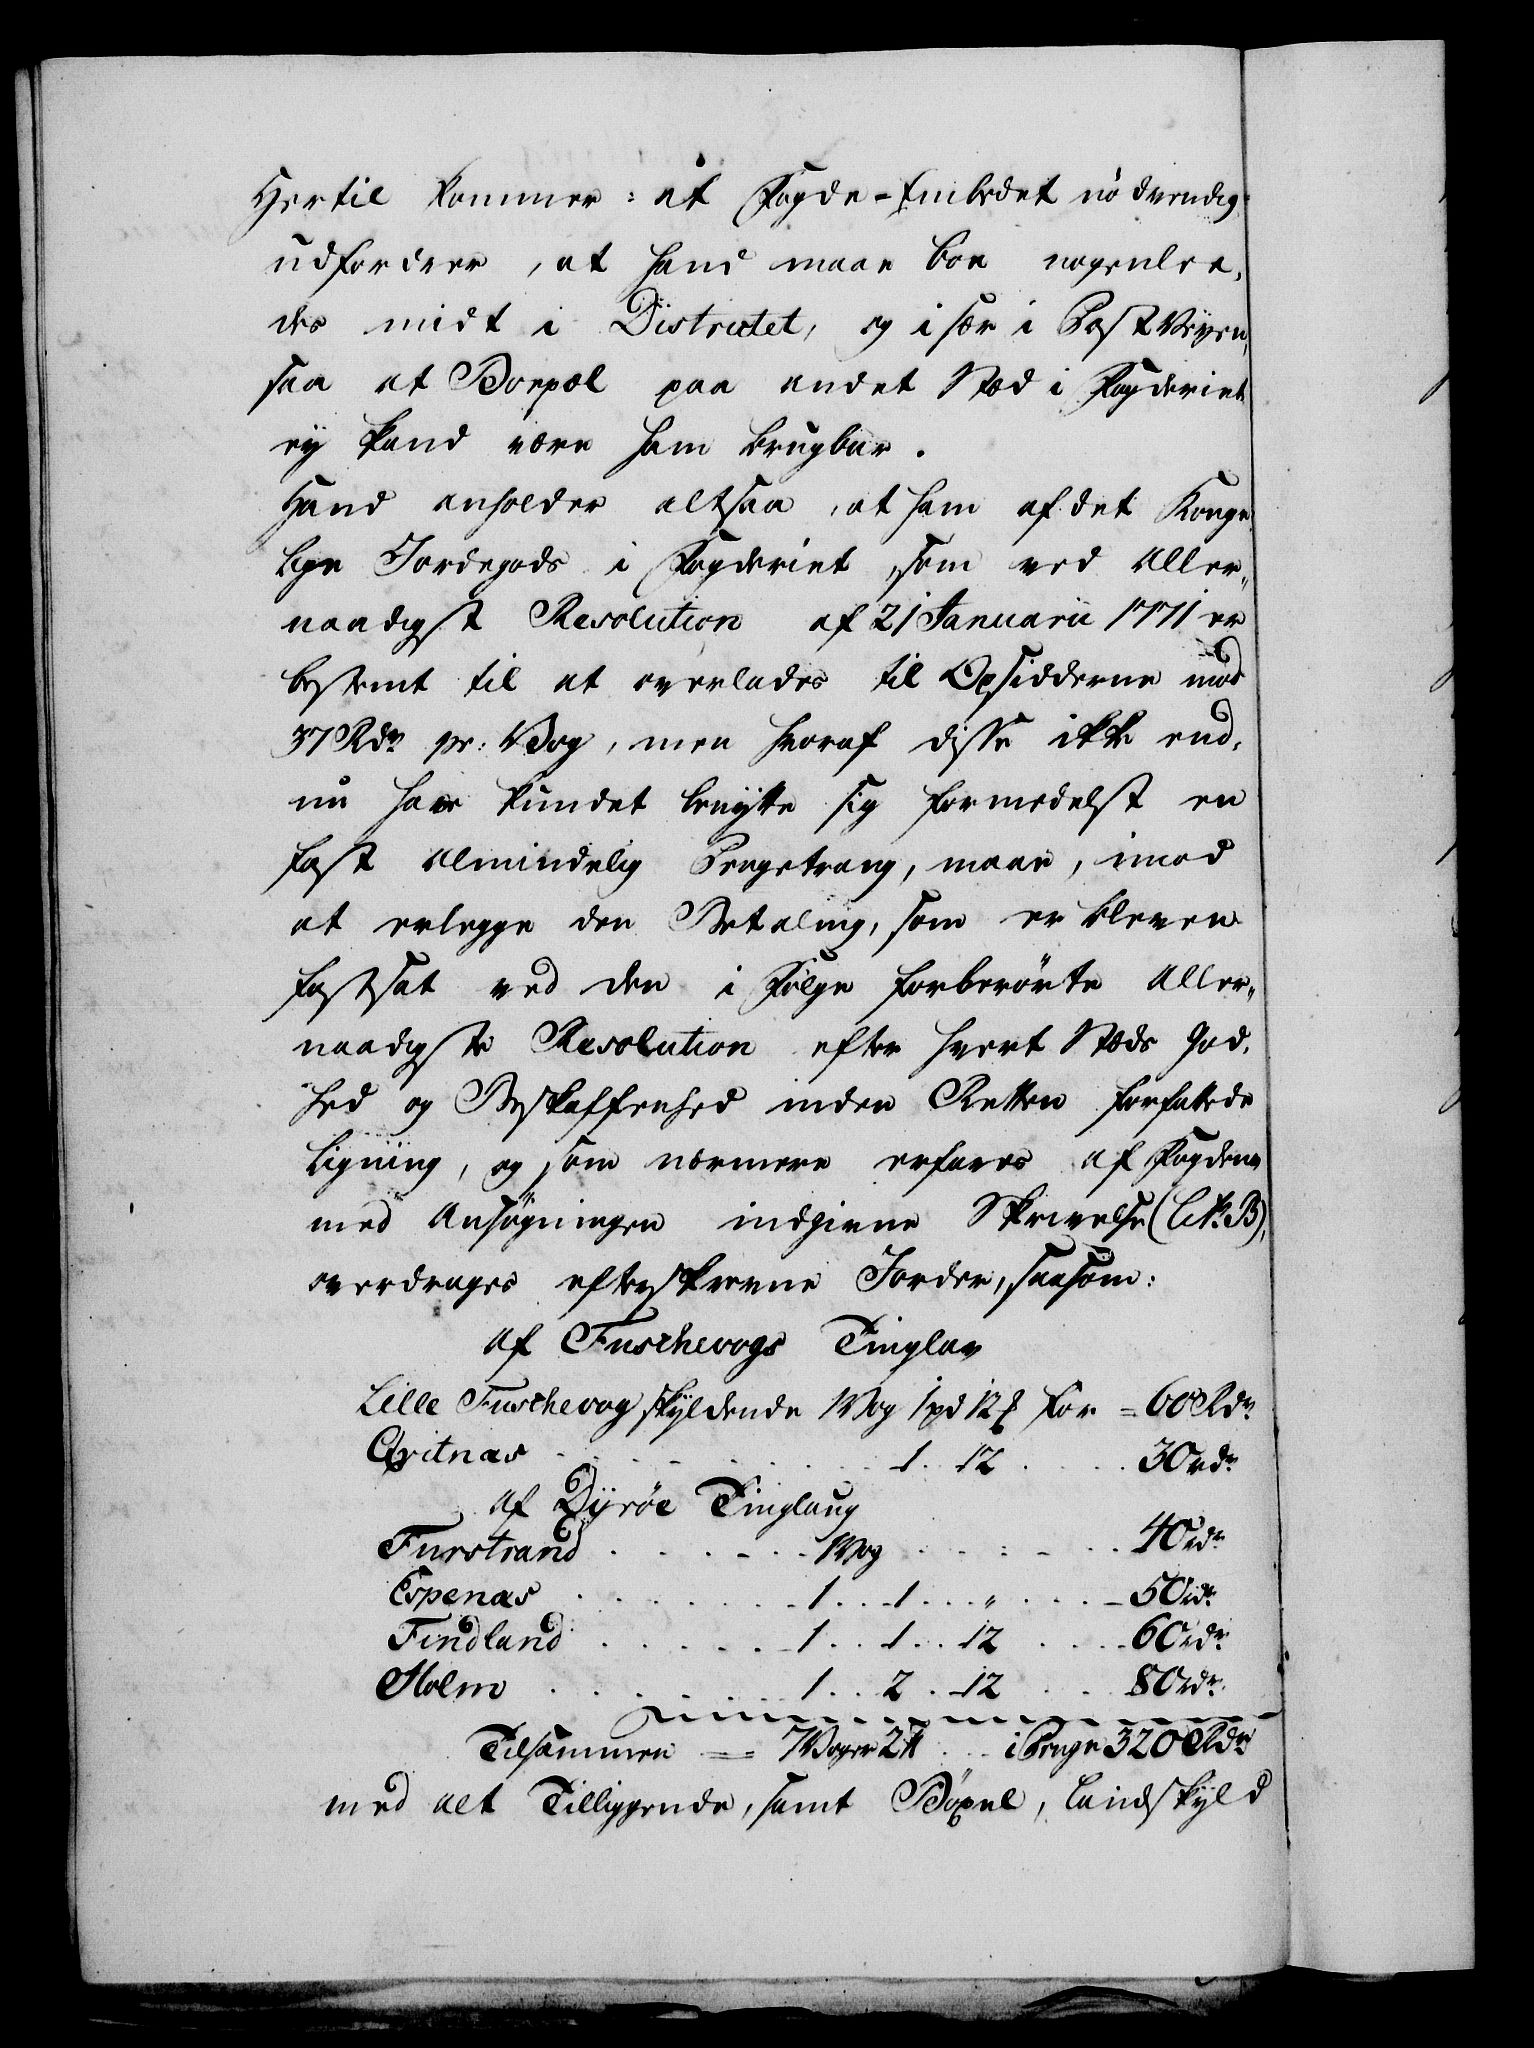 Hertil kommer: at Fogde-Embedet nödvendig
udfordrer, at hand maae boe nogenlee,
des midt i Districtet, og især i Postveyen,
saa at Boepæl paa andet Stæd i Fogderiet
ey kand være ham brugbar.
Hand anholder altsaa, at ham af det Konge
lige Jordegods i Fogderiet, som ved aller„
naadigst Resolution af 21 Januarii 1771 er
bestemt til at overlades til Opsidderne mod
37 Rdr pr: Vog, men hvoraf disse ikke end,
nu har kundet benÿtte sig formedelst en
fast almindelig Pengetrang, maae, imod
at erlegge den Betaling, som er bleven
fastsat ved den i Fölge forberörte aller„
naadigste Resolution efter hvert Stæds God,
hed og Beskaffenhed inden Retten forfattede
Ligning, og som nærmere erfares af Fogdens
med Ansögningen indgivne Skrivelse (Litr. B),
overdrages efterskrevne Jorder, saasom:
af Fuschevogs Tinglav
Lille Fuschevog skÿldende 1 Vog 1 pd 12 ℔ for = 60 Rdr
Qvitnæs 1 . 12 . 30 rdr
af Dÿröe Tinglaug
Furstrand . 1 Vog . 40 rdr
Espenæs . 1 . 1 . „ . 50 rdr
Findland . 1 . 1 . 12 . 60 rdr
Holm . 1 . 2 . 12 . 80 rdr
Tilsammen = 7 Voger 2 ℔ . i Penge 320 Rdr
med alt Tilliggende, samt Böxel, Landskÿld